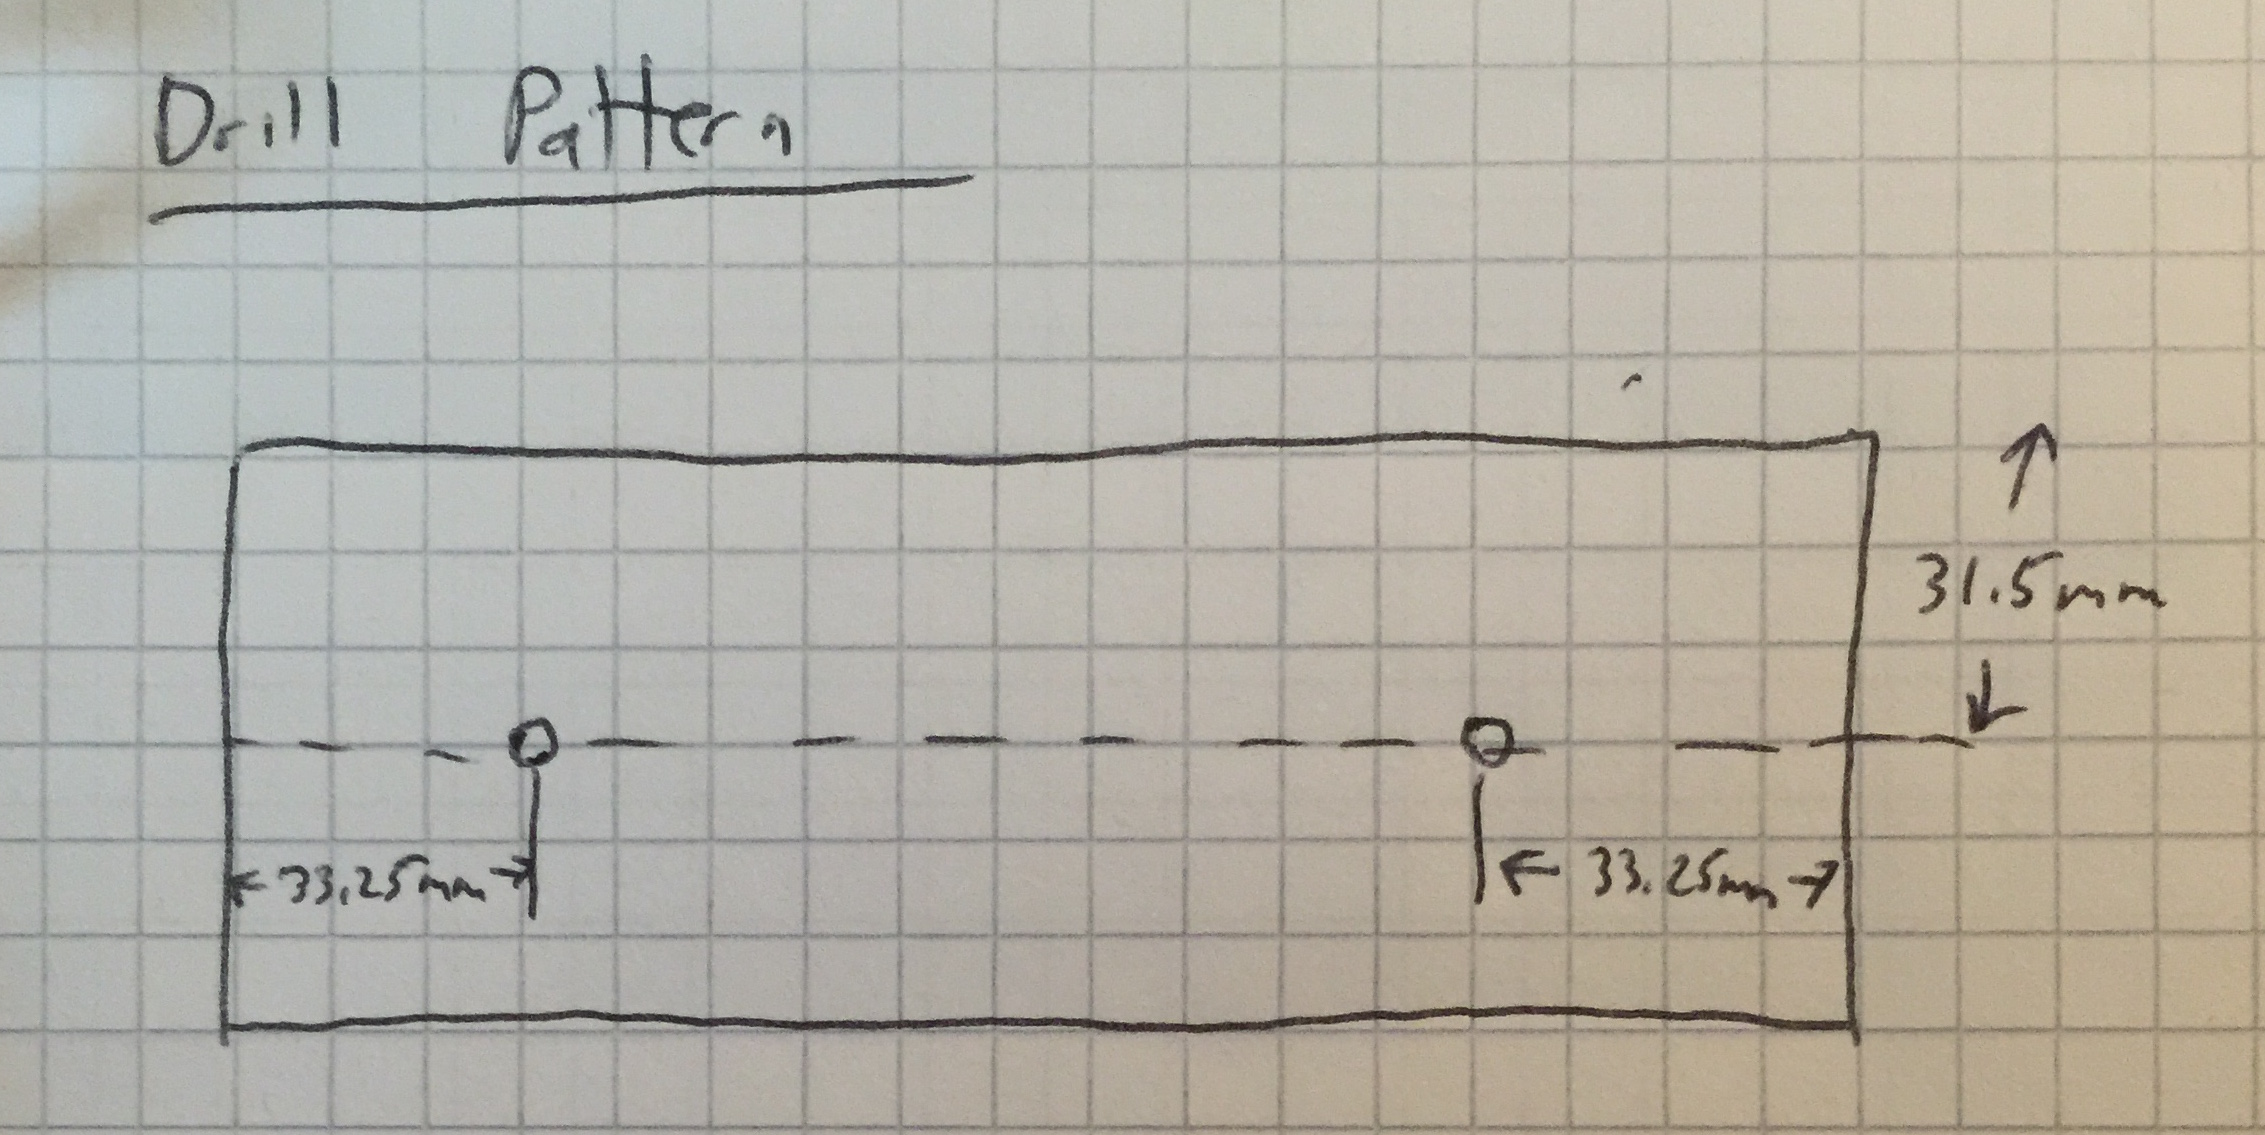 Drill Pattern
31.5mm
33.25mm
33.25mm